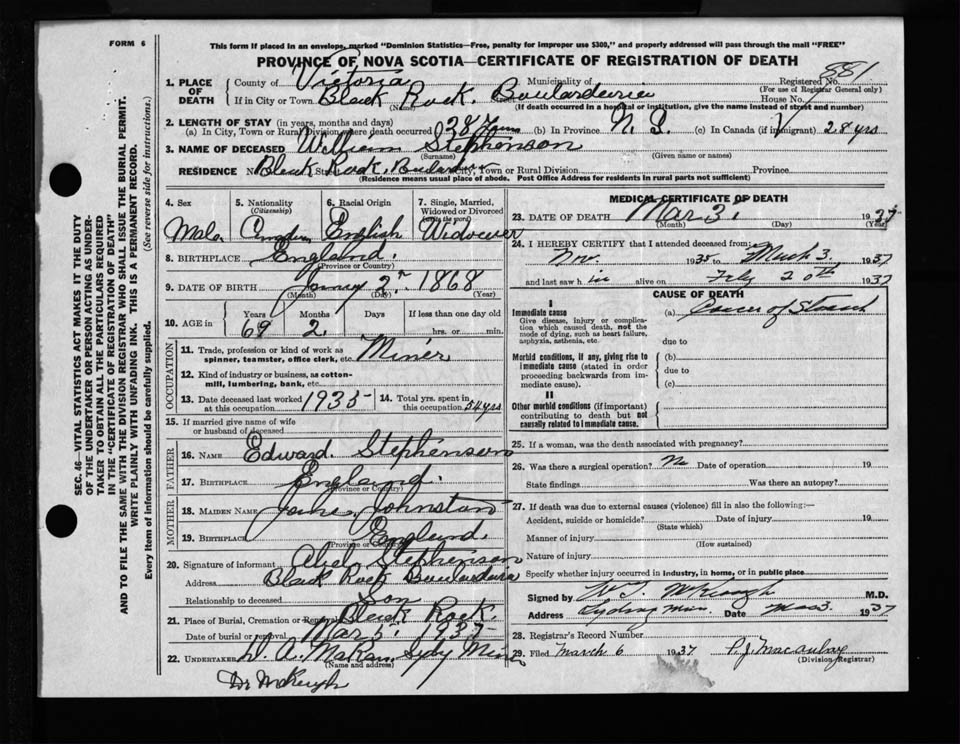 FORM 6
This form if placed in an envelope, marked "Dominion Statistics—Free, penalty for improper use $300," and properly addressed will pass through the mail "FREE"
PROVINCE OF NOVA SCOTIA—CERTIFICATE OF REGISTRATION OF DEATH
1. PLACE OF DEATH
County of Victoria Municipality of Registered No. 881
(For use of Registrar General only)
If in City or Town Black Rock, Street Boulardeire House No.
(Name) (If death occurred in a hospital or institution, give the name instead of street and number)
2. LENGTH OF STAY (in years, months and days)
(a) In City, Town or Rural Division where death occurred 28 years (b) In Province N. S. (c) In Canada (if immigrant) 28 yrs
3. NAME OF DECEASED William Stephenson
(Surname) (Given name or names)
RESIDENCE Black Rock, City, Town or Rural Division Province
(Residence means usual place of abode. Post Office Address for residents in rural parts not sufficient)
SEC. 46—VITAL STATISTICS ACT MAKES IT THE DUTY
OF THE UNDERTAKER OR PERSON ACTING AS UNDER-
TAKER TO OBTAIN ALL THE PARTICULARS REQUIRED
IN THE "CERTIFICATE OF REGISTRATION OF DEATH"
AND TO FILE THE SAME WITH THE DIVISION REGISTRAR WHO SHALL ISSUE THE BURIAL PERMIT.
WRITE PLAINLY WITH UNFADING INK. THIS IS A PERMANENT RECORD.
Every item of information should be carefully supplied. (See reverse side for instructions.)
4. Sex 5. Nationality (Citizenship) 6. Racial Origin 7. Single, Married, Widowed or Divorced (write the word)
Male Canadian English Widower
8. BIRTHPLACE England.
(Province or Country)
9. DATE OF BIRTH 2 1868
(Month) (Day) (Year)
10. AGE in Years Months Days If less than one day old
69 2 hrs. or min.
OCCUPATION
11. Trade, profession or kind of work as spinner, teamster, office clerk, etc. Miner
12. Kind of industry or business, as cotton-mill, lumbering, bank, etc.
13. Date deceased last worked at this occupation 1935 14. Total yrs. spent in this occupation 54 yrs
15. If married give name of wife or husband of deceased
FATHER
16. NAME Edward Stephenson
17. BIRTHPLACE England.
(Province or Country)
MOTHER
18. MAIDEN NAME Jane Johnston
19. BIRTHPLACE England.
(Province or Country)
20. Signature of informant Abel Stephenson
Address Black Rock Boulardera
Relationship to deceased Son
21. Place of Burial, Cremation or Removal Black Rock.
Date of burial or removal Mar 5 1937
22. UNDERTAKER Sydy Mines
(Name and address)
Dr McKeugh
MEDICAL CERTIFICATE OF DEATH
23. DATE OF DEATH Mar 3, 1937
(Month) (Day) (Year)
24. I HEREBY CERTIFY that I attended deceased from:
Nov. 1935 to March 3 1937
and last saw him alive on Feby 20th 1937
CAUSE OF DEATH
I
Immediate cause (a) Cancer of Stomach
Give disease, injury or complication which caused death, not the mode of dying, such as heart failure, asphyxia, asthenia, etc.
due to
Morbid conditions, if any, giving rise to immediate cause (stated in order proceeding backwards from immediate cause).
(b)
due to
(c)
II
Other morbid conditions (if important) contributing to death but not causally related to immediate cause.
25. If a woman, was the death associated with pregnancy?
26. Was there a surgical operation? No Date of operation 19
State findings Was there an autopsy?
27. If death was due to external causes (violence) fill in also the following:—
Accident, suicide or homicide? Date of injury 19
(State which)
Manner of injury
(How sustained)
Nature of injury
Specify whether injury occurred in industry, in home, or in public place
Signed by McKeough M.D.
Address Sydney Mines. Date Mar 3. 1937
28. Registrar's Record Number
29. Filed March 6 1937 P. J. Macaulay
(Division Registrar)